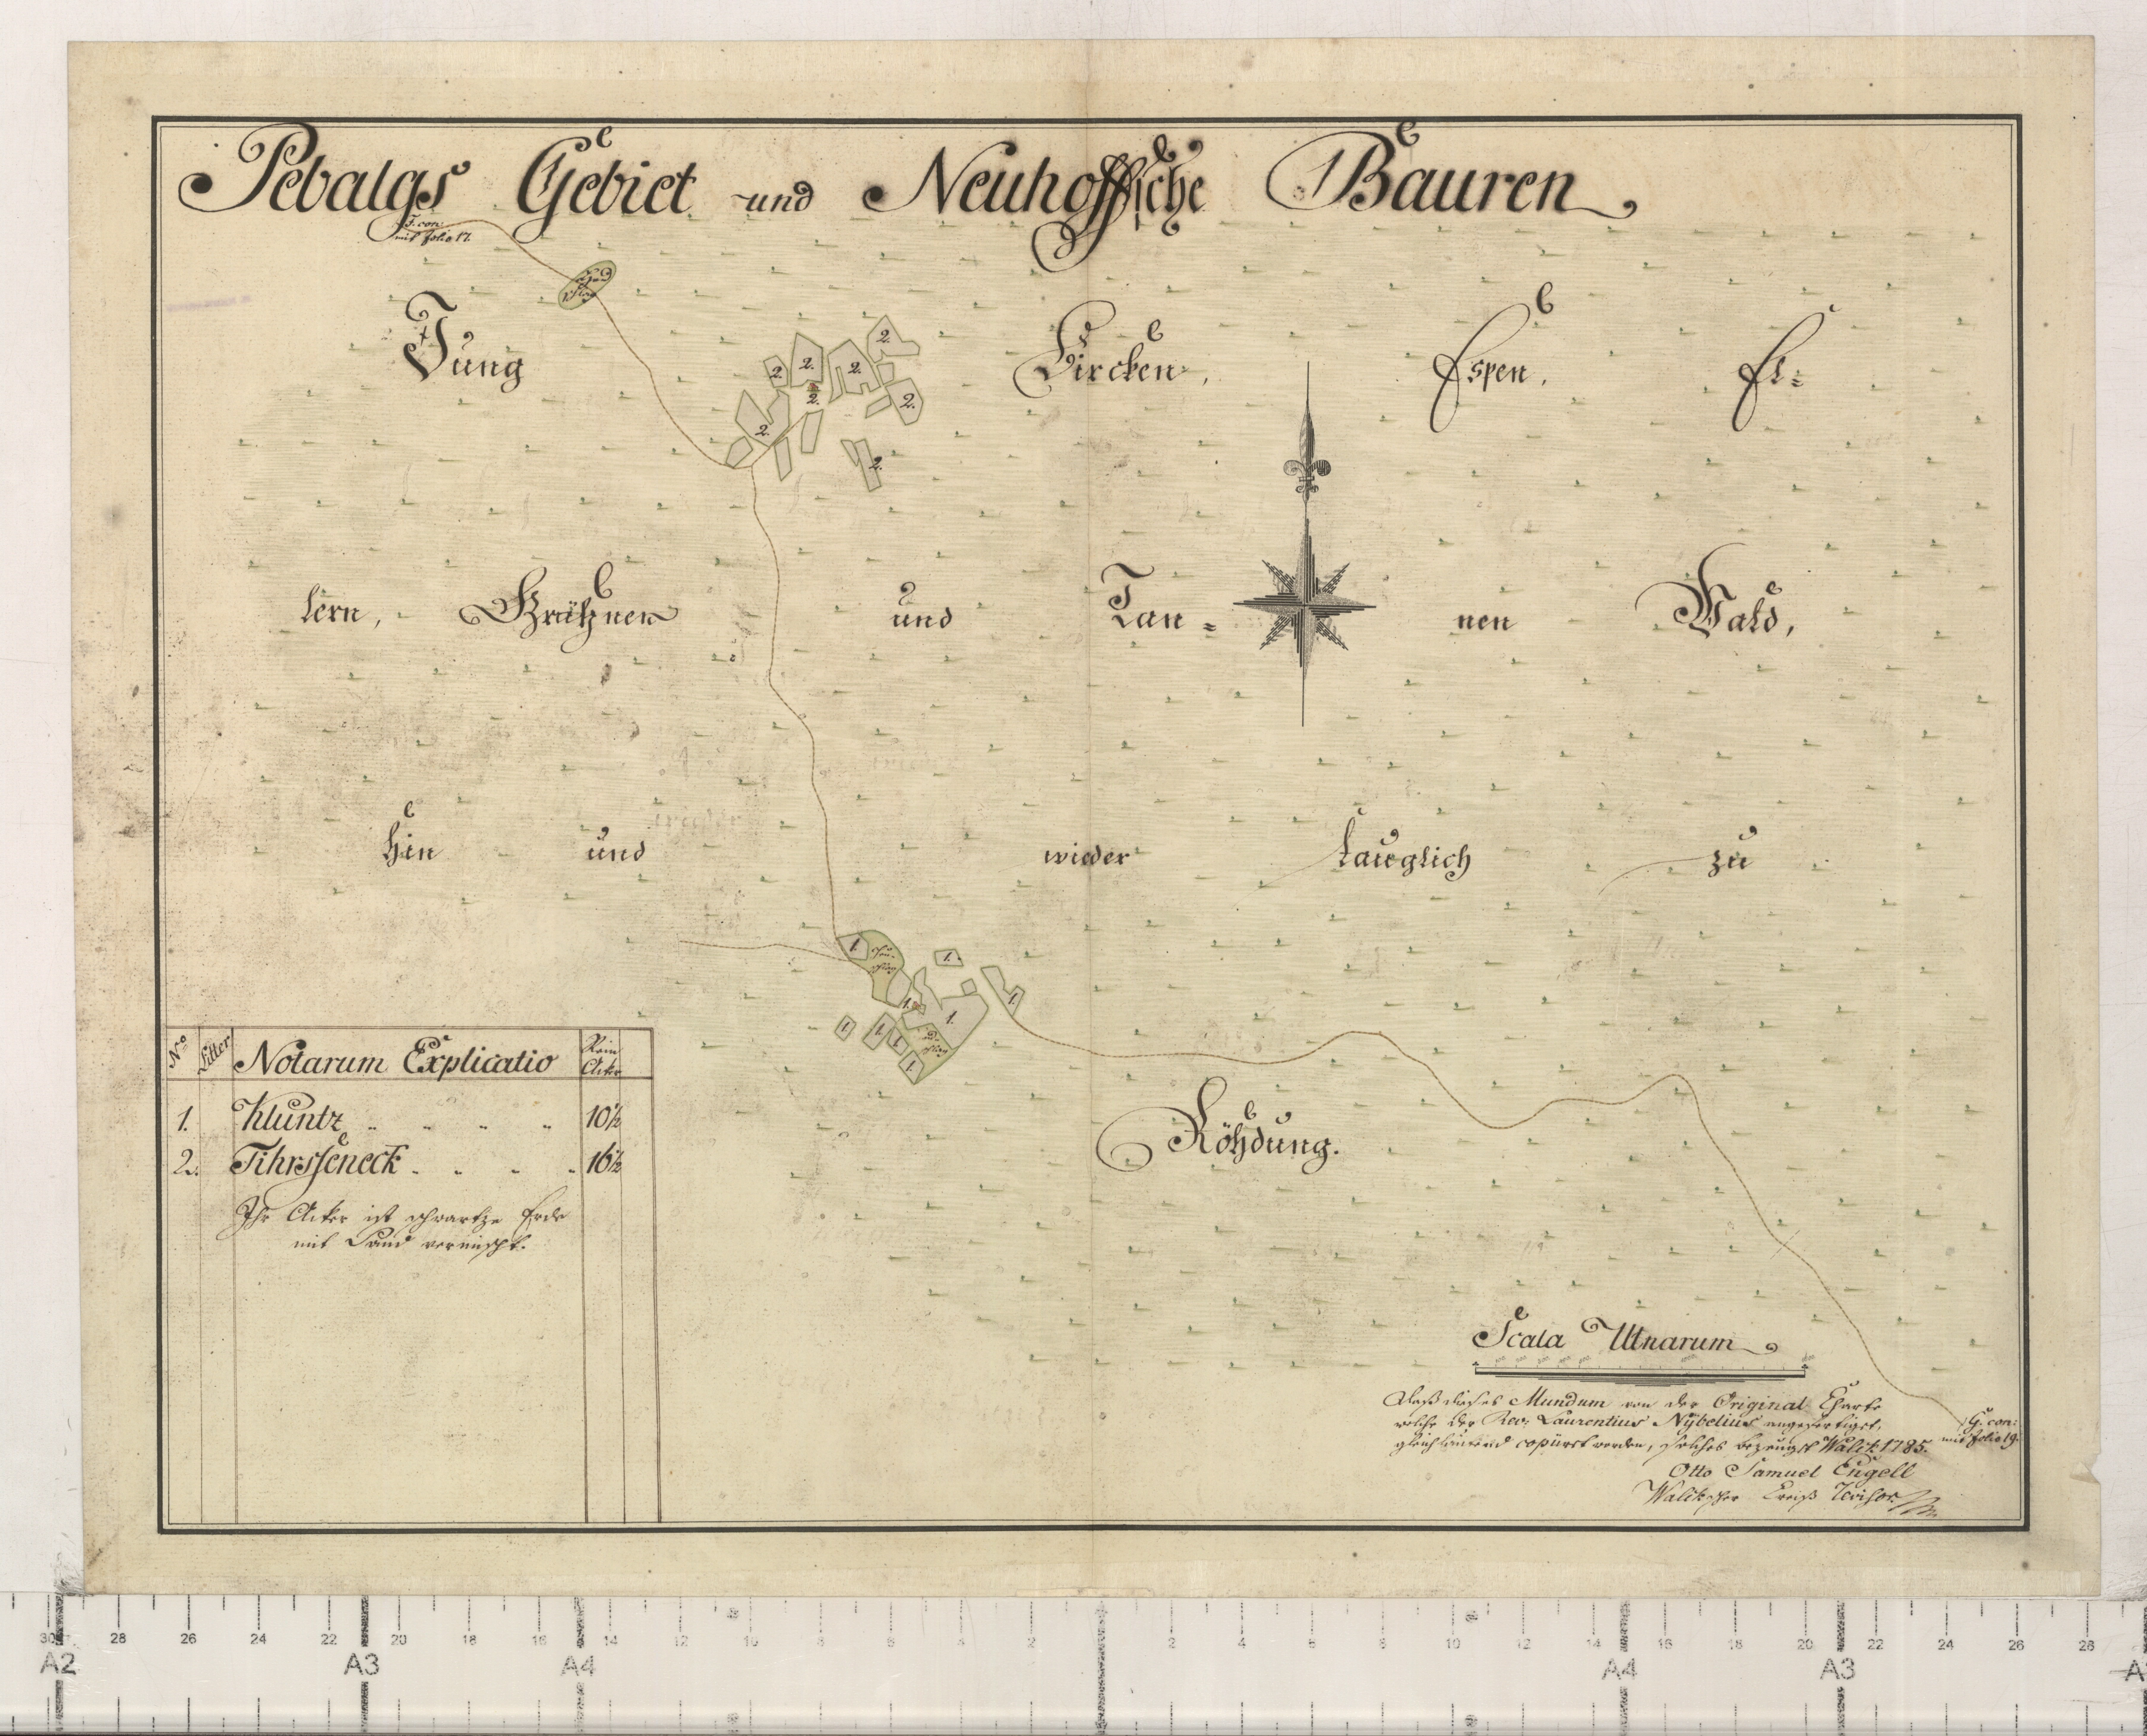 Pebalgs Gebiet und Neuhoffsche Bauren
F. con
mit folio 17.
Heu
schlag
Jung Bircken, Espen, El=
2. 2. 2. 2.
2. 2.
2.
2.
lern, Grähnen und Tan= nen Wald,
hin und wieder tauglich zu
1. Heu-
schlag
1.
1.
1. 1.
1. 1. 1.
1.
Röhdung.
No Litter Notarum Explicatio Rein Acker
1. Kluntz 10½
2. Tihrsseneck 16½
Ihr Acker ist schwartze Erde
mit Sand vermischt.
Scala Ulnarum
Daß dieses Mundum von der Original Charte
welche der Rev: Laurentius Nybelius angefertiget,
gleichlautend copiirt worden, solches bezeuget Walck 1785.
Otto Samuel Engell
Walckscher Kreiß Revisor
G. con:
mit folio 19.
30 28 26 24 22 20 18 16 14 12 10 8 6 4 2 2 4 6 8 10 12 14 16 18 20 22 24 26 28
A2 A3 A4 A4 A3 A